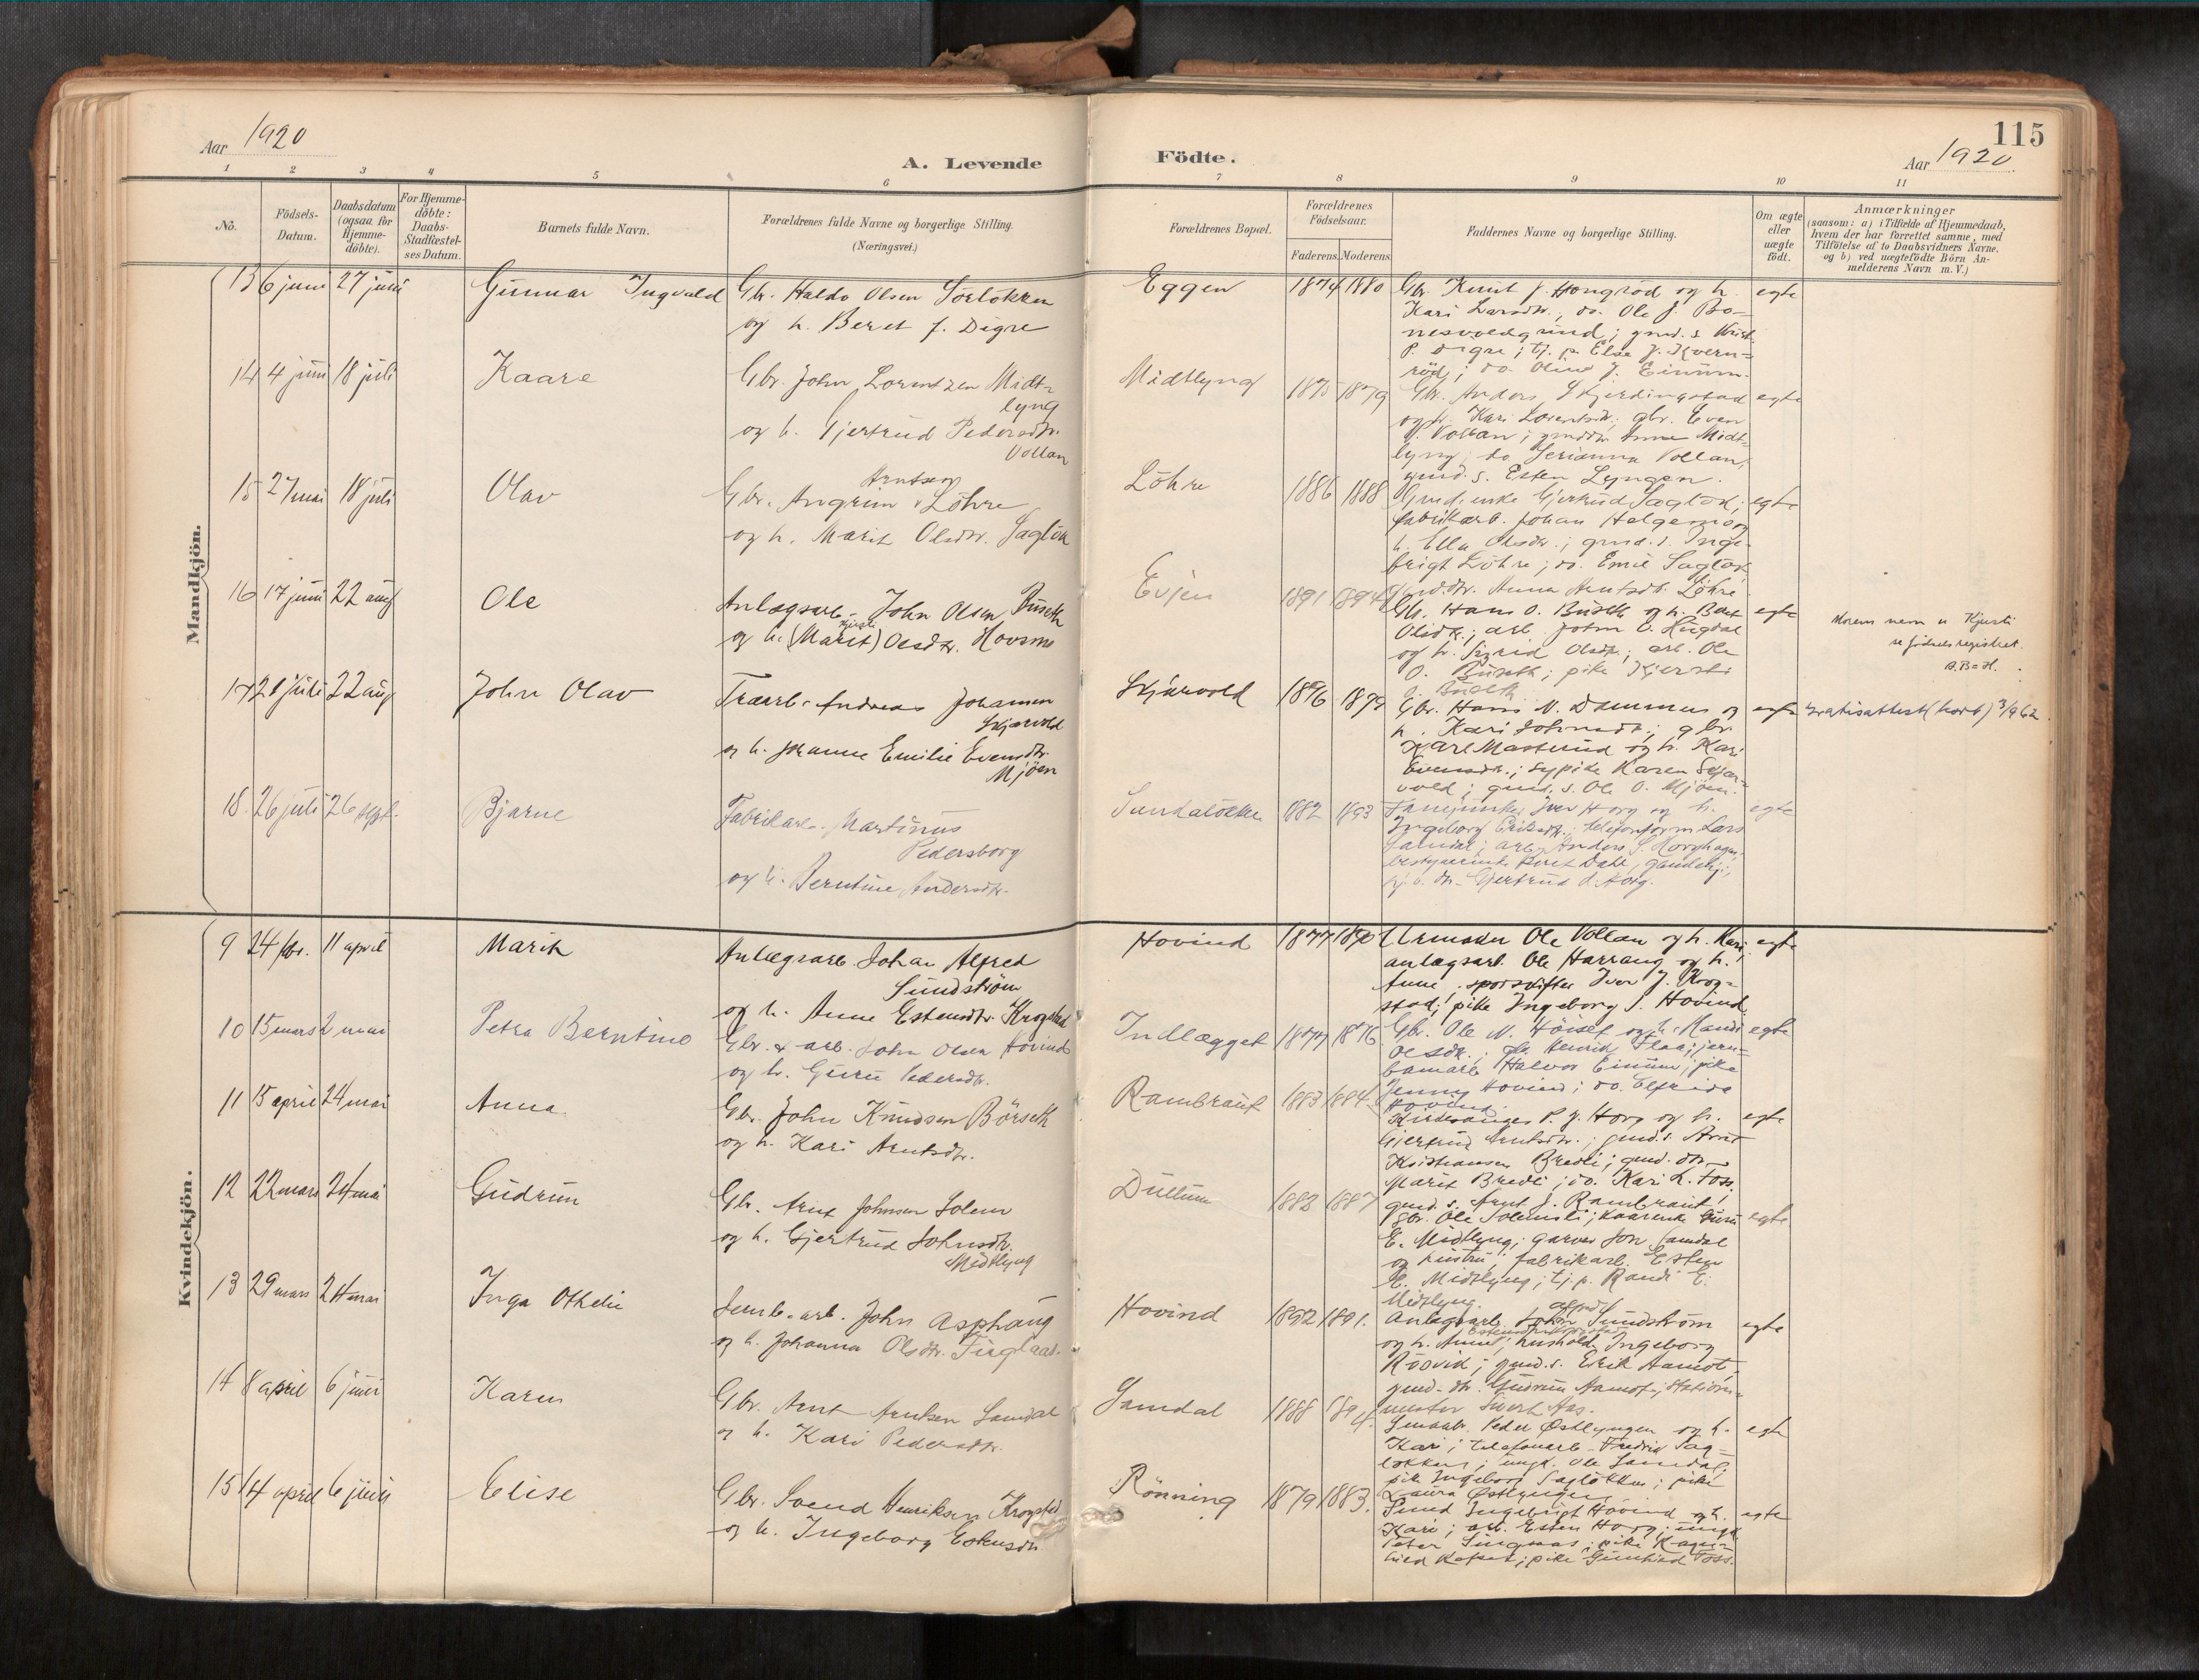 Aar 1920
A. Levende
Födte.
115
Aar 1920
1 2 3 4 5 6 7 8 9 10 11
No.
Födsels-
Datum.
Daabsdatum
(ogsaa for
Hjemme-
döbte).
For Hjemme-
döbte:
Daabs-
Stadfæstel-
ses Datum.
Barnets fulde Navn.
Forældrenes fulde Navne og borgerlige Stilling.
(Næringsvei.)
Forældrenes Bopæl.
Forældrenes
Födselsaar.
Faderens. Moderens.
Faddernes Navne og borgerlige Stilling.
Om ægte
eller
uægte
født.
Anmærkninger
(saasom: a) i Tilfælde af Hjemmedaab,
hvem der har forrettet samme, med
Tilföielse af to Daabsvidners Navne.
og b) ved uægtefödte Börn An-
melderens Navn m. V.)
Mandkjön.
13 6 juni 27 juni
Gunnar Ingvald
Gbr. Haldo Olsen Sörlökken
og h. Beret f. Digre
Eggen
1874 1880
Gbr. Knut J. Hongröd og h.
Kari Larsdtr., do. Ole J. Bo-
nesvoldgrind; gmd. s.
P. Digre; tj. p. Else J. Kvern-
röd; do Oline J. Einum.
egte
14 4 juni 18 juli
Kaare
Gbr. John Lorentzen Midt-
lyng
og h. Gjertrud Pedersdtr.
Vollan
Midtlyng
1875 1879
Gbr. Anders Skjerdingstad
og h. Kari Lorentsdtr.; gbr. Even
Vollan; gmddtr. Anne Midt-
lyng, do. Serianna Vollan,
gmd. s. Esten Lyngen.
egte
15 27 mai 18 juli
Olav
Arntsen
Gbr. Angrim Löhre
og h. Marit Olsdtr. Saglök
Löhre
1886 1888
Gmd. enke Gjertrud Saglök;
fabrikarb. Johan Helgemo og
h. Ella Olsdtr.; gmd. s. Inge-
brigt Löhre; do. Emil Saglök
gmd. dtr. Anna Arntsdtr. Löhre
egte
16 17 juni 22 aug
Ole
Anlægsarb. John Olsen Buseth
Kjersti
og h. (Marit) Olsdtr. Hovsmo
Evjen
1891 1894
Gbr. Hans O. Buseth og h. Beret
Olsdtr.; arb. John O. Hugdal
og h. Sigrid Olsdtr.; arb. Ole
O. Buseth; pike Kjersti
O. Buseth
egte
Morens navn er Kjersti
se fødselsregistret.
17 21 juli 22 aug
John Olav
Træarb. Andreas Johansen
Skjærvold
og h. Johanne Emilie Evensdtr.
Mjöen
Skjærvold
1876 1879
Gbr. Hans N. Dammen og
h. Kari Johnsdtr.; gbr.
Karl Mastlund og h. Kari
Evensdtr.; sypike Karen Skjær-
vold; gmd. s. Ole O. Mjöen.
egte
Gratisattest (kort) 3/9 62.
18. 26 juli 26 sept.
Bjarne
Fabrikarb. Martinus
Pedersborg
og h. Berntine Andersdtr.
Sundalökken
1882 1893
Iver Horg og h.
Ingeborg Eriksdtr.; telefonform. Lars
Samdal; arb. Anders S. Horghagen.
bestyrerinde Beret Dahl,
Gjertrud Horg.
egte
Kvindekjön.
9 24 febr. 11 april
Marit
Anlægsarb. Johan Alfred
Sundström
og h. Anne Estensdtr. Krogstad
Hovind
1877 1890
Urmaker Ole Vollan og h. Kari;
anlægsarb. Ole Harrang og h.
Anne; sporskifter Iver J. Krog-
stad; pike Ingeborg J. Hovind.
egte
10 15 mars 2 mai
Petra Berntine
Gbr. & arb. John Olsen Hovind
og h. Guru Pedersdtr.
Indlægget
1877 1876.
Gbr. Ole N. Höiset og h. Randi
Olsdtr.; gbr. Henrik Flaa; jern-
banearb. Halvor Einum; pike
Jenny Hovind; do. Elfrida
Hovind.
egte
11 15 april 24 mai
Anna
Gbr. John Knudsen Börseth
og h. Kari Arntsdtr.
Rambraut
1883 1884.
Kirkesanger P. J. Horg og h.
Gjertrud Arntsdtr.; gmd. s. Arnt
Kristiansen Bredli; gmd. dtr.
Marit Bredli; do. Kari L. Foss.
gmd. s. Arnt J. Rambraut.
egte
12 22 mars 24 mai
Gudrun
Gbr. Arnt Johnsen Solem
og h. Gjertrud Johnsdtr.
Midtlyng
Dullum
1882 1887
gbr. Ole Solemsli; kaarenke Guru
E. Midtlyng; garver Jon Samdal
og hustru; fabrikarb. Esten
E. Midtlyng; tj. p. Randi E.
Midtlyng.
egte
13 29 mars 24 mai
Inga Othelie
Jernb. arb. John Asphaug
og h. Johanna Olsdtr.
Hovind
1892 1891.
Alfred
Anlægsarb. Johan Sundström
og h. Anne; hushold. Ingeborg
Rösvid; gmd. s. Erik Aamot;
gmd. dtr. Gudrun Aamot; stations-
mester Sivert Aas.
egte
14 8 april 6 juni
Karen
Gbr. Arnt Arntsen Samdal
og h. Kari Pedersdtr.
Samdal
1888 1894.
Smaabr. Peder Østlyngen og h.
Kari; telefonarb. Fredrik Sag-
lökken; ungk. Ole Samdal;
pike Ingeborg Saglökken; pike
Laura Østlyngen.
egte
15 14 april 6 juni
Elise
Gbr. Svend Henriksen Krogstad
og h. Ingeborg Estensdtr
Rönning
1879 1883.
Smed Ingebrigt Hovind og h.
Kari; arb. Esten Horg; ungk
Peter Singsaas; pike Ragn-
hild; pike Gunhild Foss.
egte